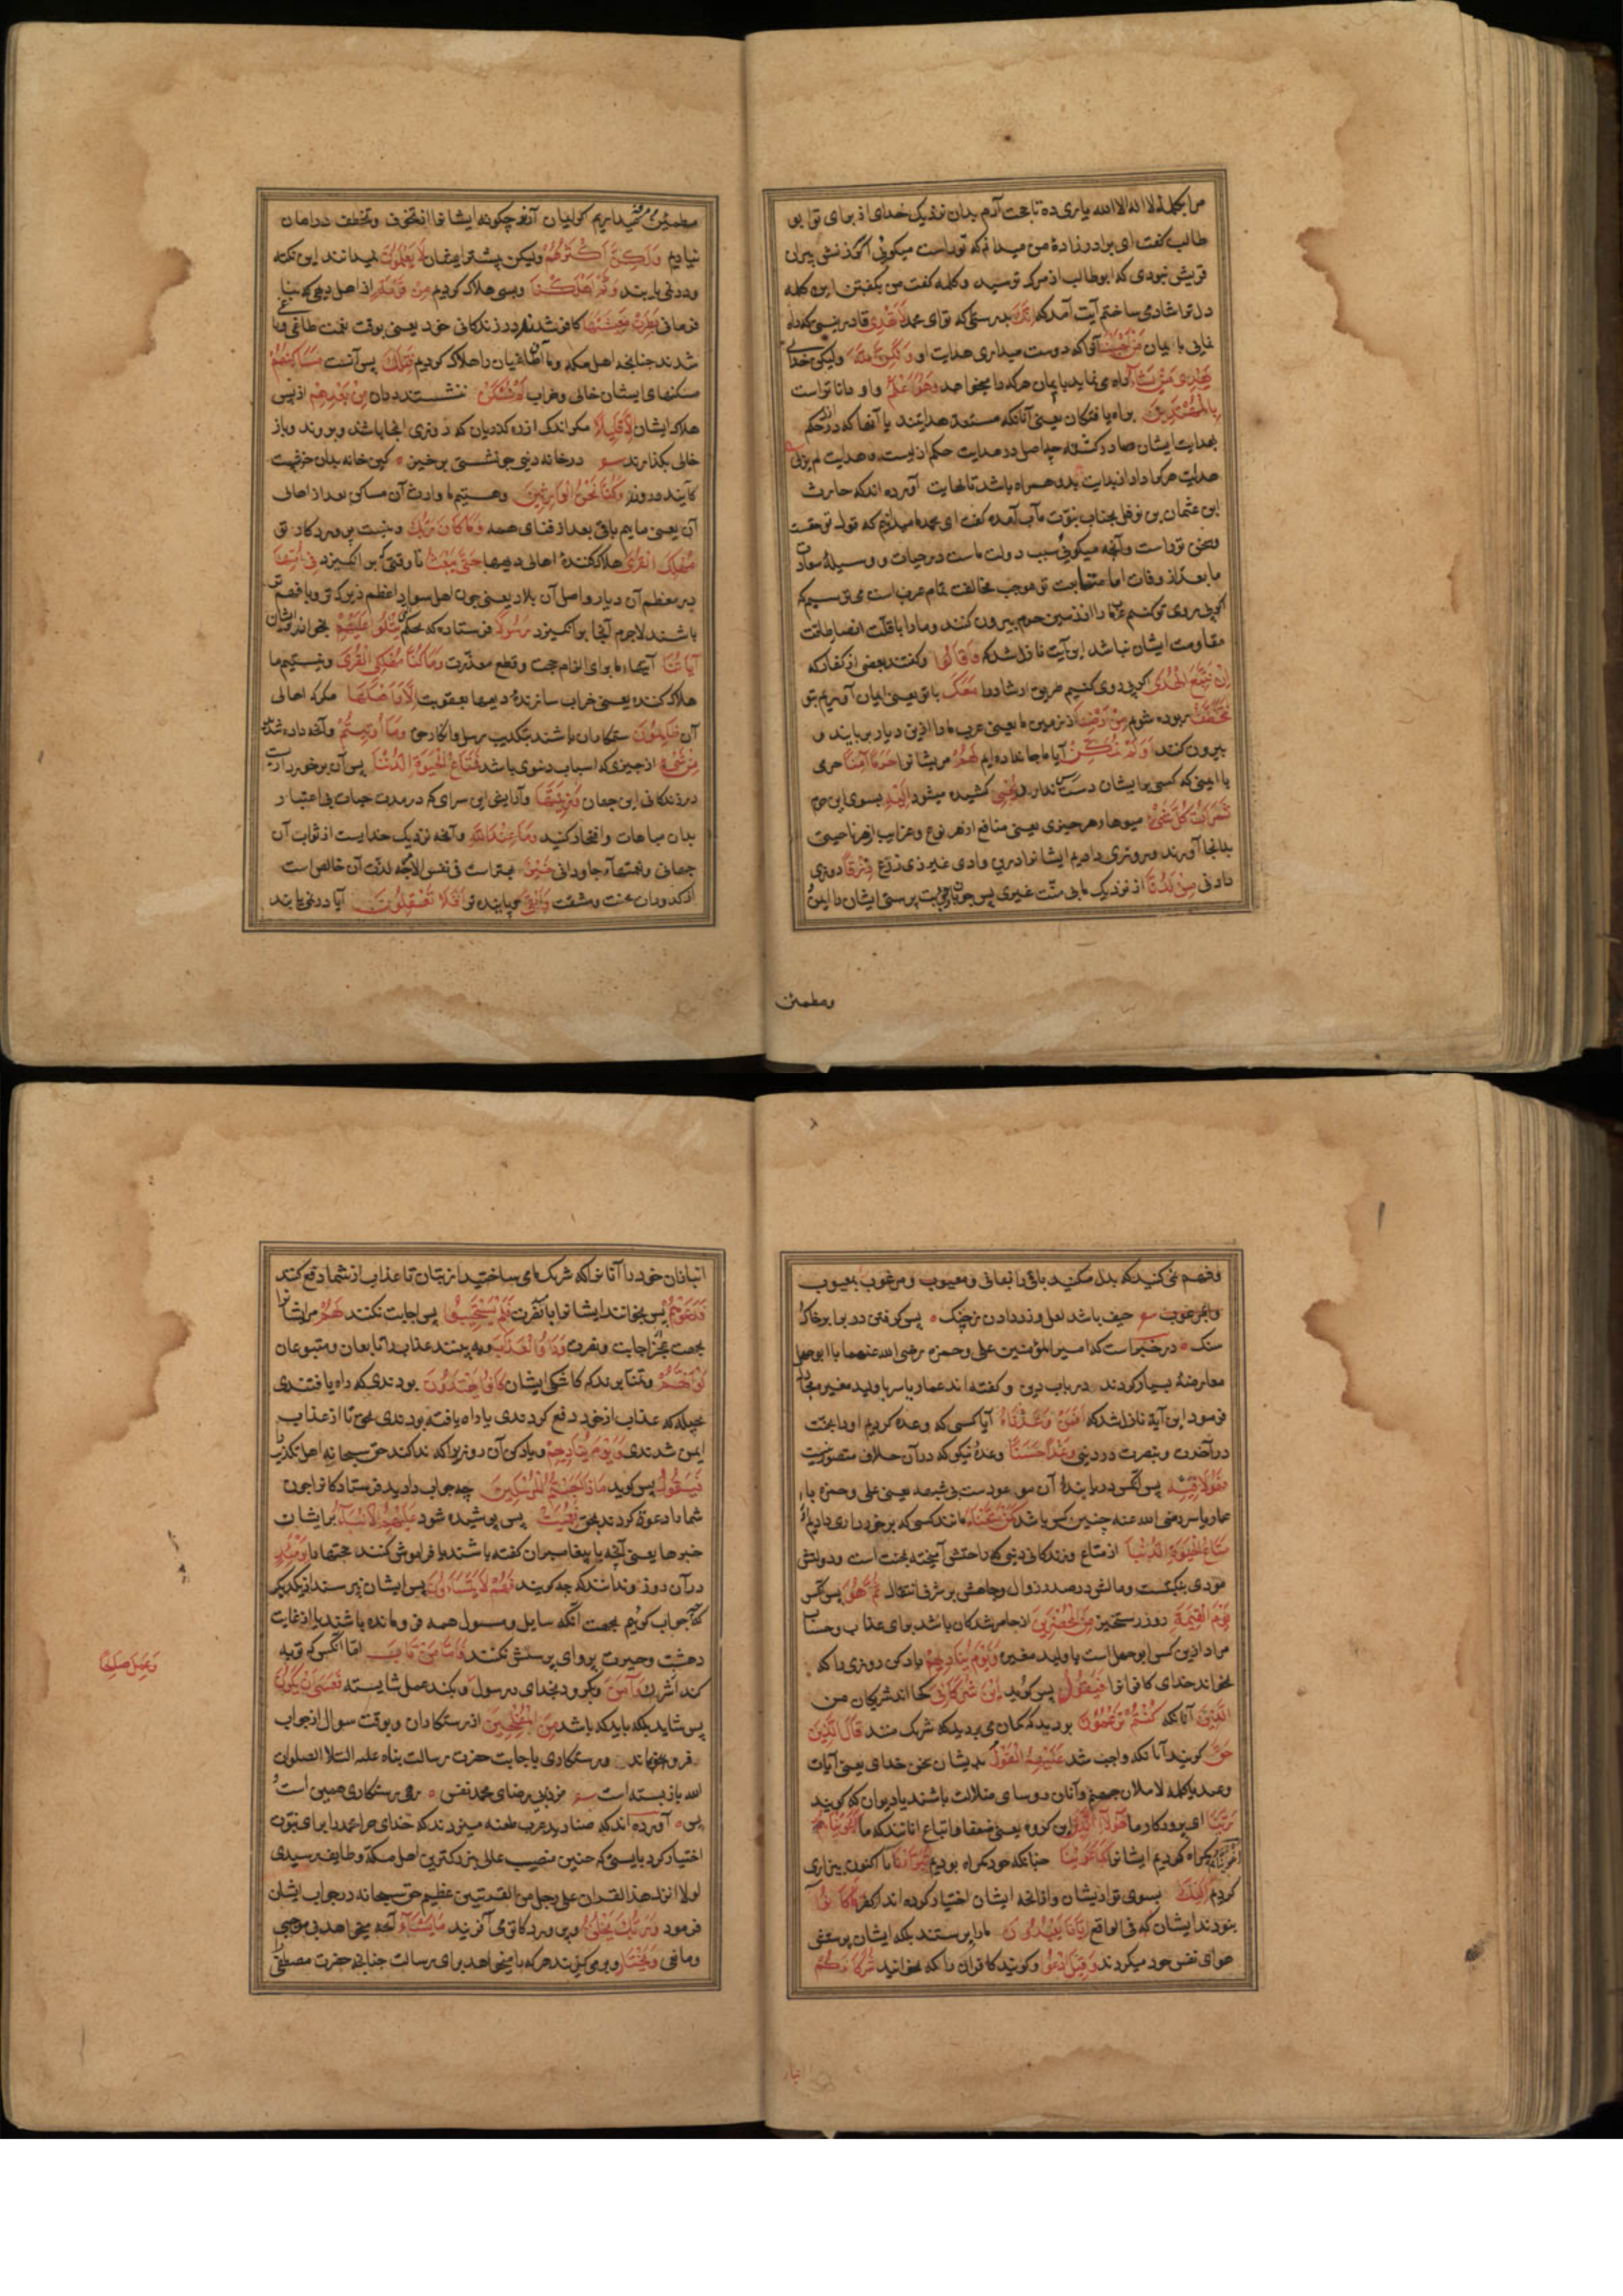 مرا بکلمهٔ لا اله الا الله یاری ده تا حجت آرم بدان نزدیک خدای از برای تو ابو
طالب گفت ای برادرزادهٔ من میدانم که تو راست میکوئی اکر نه سرزنش پیران
قریش نبودی که ابوطالب از مرک ترسید و کلمه گفت من بکفتن این کلمه
دل ترا شاد می ساختم آیت آمد که اِنَّكَ بدرستی که تو ای محمد لَا تَهْدِی قادر نیستی که راه
نمایی بایمان مَنْ اَحْبَبْتَ آنرا که دوست میداری هدایت او وَلٰکِنَّ اللّٰهَ ولیکن خدای
یَهْدِی مَنْ یَشَآءُ راه می نماید بایمان هرکه را میخواهد وَهُوَ اَعْلَمُ و او داناتر است
بِالْمُهْتَدِینَ براه یافتکان یعنی آنانکه مستعد هدایتند یا آنها که در حکم
بهدایت ایشان صادر کشته چه اصل در هدایت حکم ازلیست هدایت لم یزلی
هدایت هرکرا داد از بدایت بدو همراه باشد تا نهایت آورده اند که حارث
ابن عثمان بن نوفل بجناب نبوت مآب آمده کفت ای محمد ما میدانیم که قول تو حقست
و سخن تو راست و آنچه میکوئی سبب دولت ماست در حیات و وسیلهٔ سعادت
ما بعد از وفات اما متابعت تو موجب مخالفت تمام عرب است می ترسیم که
اکر پی روی تو کنیم عرب ما را از زمین حرم بیرون کنند و ما را با قلت انصار طاقت
مقاومت ایشان نباشد این آیت نازل شد که وَقَالُوا و کفتند بعضی از کفار که
اِنْ نَتَّبِعِ الْهُدٰی اکر پی روی کنیم طریق ارشاد را مَعَكَ با تو یعنی ایمان آوریم بتو
نُتَخَطَّفْ ربوده شویم مِنْ اَرْضِنَا از زمین ما یعنی عرب ما را ازین دیار بربایند و
بیرون کنند اَوَلَمْ نُمَکِّنْ آیا ما جا نداده ایم لَهُمْ مر ایشانرا حَرَمًا اٰمِنًا حرمی
با ایمنی که کسی را بر ایشان دست رس ندارد یُجْبٰی کشیده میشود اِلَیْهِ بسوی این حرم
ثَمَرَاتُ کُلِّ شَیْءٍ میوهای هر چیزی یعنی منافع از هر نوع و غرایب از هر ناحیتی
بدانجا آورند و روزی دادیم ایشانرا درین وادی غیر ذی زرع رِزْقًا روزی
دادنی مِنْ لَدُنَّا از نزدیک ما بی منّت غیری پس چون با وجود بت پرستی ایشان را ایمن
ومطمئن
مطمئن و مرفه میداریم کر ایمان آرند چکونه ایشانرا از تخوف و تخطف در امان
نیاریم وَلٰکِنَّ اَکْثَرَهُمْ ولیکن بیشتر ایشان لَا یَعْلَمُونَ نمیدانند این نکته
و در نمی یابند وَکَمْ اَهْلَکْنَا و بسی هلاک کردیم مِنْ قَرْیَةٍ از اهل دیهی که بنا
فرمانی بَطِرَتْ مَعِیشَتَهَا کافر شدند در زندکانی خود یعنی بوقت نعمت طاغی و باغی
شدند چنانچه اهل مکه و ما آن طاغیان را هلاک کردیم فَتِلْكَ پس آنست مَسَاکِنُهُمْ
مسکنهای ایشان خالی و خراب لَمْ تُسْکَنْ ننشستند دران مِنْ بَعْدِهِمْ از پس
هلاک ایشان اِلَّا قَلِیلًا مکر اندک از ره کذریان که روزی آنجا باشند و بروند و باز
خالی بکذارند در خانه دنیی چو نشستی برخیز کین خانه بدان خوشست
کآیند و روند وَکُنَّا نَحْنُ الْوَارِثِینَ و هستیم ما وارث آن مساکن بعد از اهالی
آن یعنی مائیم باقی بعد از فنای همه وَمَا کَانَ رَبُّكَ و نیست پروردکار تو
مُهْلِكَ الْقُرٰی هلاک کنندهٔ اهالی دیهها حَتّٰی یَبْعَثَ تا وقتی که برانکیزد فِی اُمِّهَا
در معظم آن دیار و اصل آن بلاد یعنی چون اهل سواد اعظم زیرک تر و بافهم تر
باشند لاجرم آنجا برانکیزد رَسُولًا فرستاده که بحکم یَتْلُوا عَلَیْهِمْ بخواند بر ایشان
اٰیَاتِنَا آیتهای ما برای الزام حجت و قطع معذرت وَمَا کُنَّا مُهْلِکِی الْقُرٰی و نیستیم ما
هلاک کننده یعنی خراب سازندهٔ دیهها بعقوبت اِلَّا وَاَهْلُهَا مکر که اهالی
آن ظَالِمُونَ ستمکاران باشند بتکذیب رسل و انکار حق وَمَا اُوتِیتُمْ و آنچه داده شدید
مِنْ شَیْءٍ از چیزی که اسباب دنیوی باشد فَمَتَاعُ الْحَیٰوةِ الدُّنْیَا پس آن برخورداریست
در زندکانی این جهان وَزِینَتُهَا و آرایش این سرای که در مدت حیات بی اعتبار
بدان مباهات و افتخار کنید وَمَا عِنْدَ اللّٰهِ و آنچه نزدیک خدایست از ثواب آن
جهانی و نعمتهاء جاودانی خَیْرٌ بهتر است فی نفس الامر چه لذت آن خالص است
از کدورات محنت و مشقت وَاَبْقٰی و پاینده تر اَفَلَا تَعْقِلُونَ آیا در نمی یابند
و فهم نمی کنید که بدل میکنید باقی را بفانی و معیوب و مرغوب بمعیوب
حیف باشد لعل و زر دادن ز چنک پس کرفتن در برابر خاک و
سنک در خبر است که امیر المؤمنین علی و حمزه رضی الله عنهما با ابوجهل
معارضهٔ بسیار کردند در باب دین و کفته اند عمار یاسر با ولید مغیره مجادله
فرمود این آیة نازل شد که اَفَمَنْ وَعَدْنَاهُ آیا کسی که وعده کردیم او را بجنت
در آخرت و بنصرت در دنیی وَعْدًا حَسَنًا وعدهٔ نیکو که در آن خلاف متصور نیست
فَهُوَ لَاقِیهِ پس آنکس دریابندهٔ آن موعود ست بی شبهه یعنی علی و حمزه یا
عمار یاسر رضی الله عنه چنین کس باشد کَمَنْ مَتَّعْنَاهُ مانند کسی که برخورداری دادیم او را
مَتَاعَ الْحَیٰوةِ الدُّنْیَا از متاع زندکانی دنیی که راحتش آمیخته بمحنت است و دولتش
مودی بنکبت و مالش در صدد زوال و جاهش بر شرف انتقال ثُمَّ هُوَ پس آنکس
یَوْمَ الْقِیٰمَةِ روز رستخیز مِنَ الْمُحْضَرِینَ از حاضر شدکان باشد برای عذاب و حساب
مراد ازین کس ابوجهل است یا ولید مغیره وَیَوْمَ یُنَادِیهِمْ یاد کن روزی را که
بخواند خدای کافرانرا فَیَقُولُ پس کوید اَیْنَ شُرَکَآءِیَ کجا اند شریکان من
الَّذِینَ آنانکه کُنْتُمْ تَزْعُمُونَ بودید که کمان می بردید که شریک منند قَالَ الَّذِینَ
حَقَّ کویند آنانکه واجب شد عَلَیْهِمُ الْقَوْلُ بدیشان سخن خدای یعنی آیات
وعید یا کلمه لاملان جهنم و آنان روسای ضلالت باشند یا دیوان که کویند
رَبَّنَا ای پروردکار ما هٰؤُلَآءِ الَّذِینَ این کروه یعنی ضعفا و اتباع آنانند که ما اَغْوَیْنَاهُمْ
اَغْوَیْنَا کمراه کردیم ایشانرا کَمَا غَوَیْنَا چنانکه خود کمراه بودیم تَبَرَّأْنَا ما اکنون بیزاری
کردیم اِلَیْكَ بسوی تو از ایشان و از آنچه ایشان اختیار کرده اند از کفر مَا کَانُوا
نبودند ایشان که فی الواقع اِیَّانَا یَعْبُدُونَ مارا پرستند بلکه ایشان پرستش
هوای نفس خود میکردند وَقِیلَ ادْعُوا و کویند کافران را که بخوانید شُرَکَآءَکُمْ
انبازان خود را آنانرا که شریک ما می ساختید از بتان تا عذاب از شما دفع کند
فَدَعَوْهُمْ پس بخوانند ایشانرا فَلَمْ یَسْتَجِیبُوا پس اجابت نکنند لَهُمْ مر ایشانرا
بجهت عجز از اجابت و نصرت وَرَاَوُا الْعَذَابَ و به بینند عذاب را تابعان و متبوعان
لَوْ اَنَّهُمْ و تمنا برند که کاشکی ایشان کَانُوا یَهْتَدُونَ بودندی که راه یافتندی
بحیله که عذاب از خود دفع کردندی یا راه یافته بودندی بحق تا از عذاب
ایمن شدندی وَیَوْمَ یُنَادِیهِمْ و یاد کن آن روز را که ندا کند حق سبحانه اهل تکذیب را
فَیَقُولُ پس کوید مَاذَا اَجَبْتُمُ الْمُرْسَلِینَ چه جواب دادید فرستادکانرا چون
شما را دعوة کردند بحق فَعَمِیَتْ پس پوشیده شود عَلَیْهِمُ الْاَنْبَآءُ بر ایشان
خبرها یعنی آنچه با پیغامبران کفته باشند یا فراموش کنند حجتها را یَوْمَئِذٍ
در آن روز و ندانند که چه کویند فَهُمْ لَا یَتَسَآءَلُونَ پس ایشان نپرسند از یکدیکر
که جواب کوئیم بجهت آنکه سایل و مسئول همه فرومانده باشند یا از غایت
دهشت و حیرت پروای پرسش نکنند فَاَمَّا مَنْ تَابَ اما آنکس که توبه
کند از شرک وَاٰمَنَ و بکرود بخدای و رسول و بکند عمل شایسته فَعَسٰی اَنْ یَکُونَ
وَعَمِلَ صَالِحًا
پس شاید بلکه باید که باشد مِنَ الْمُفْلِحِینَ از رستکاران و بوقت سوال از جواب
فرو نماند و رستکاری باجابت حضرت رسالت پناه علیه السلام الصلوات
الله باز بسته است مزن جز برضای محمد نفس ره رستکاری همین است و
بس آورده اند که صنادید عرب طعنه میزدند که خدای چرا محمد را برای نبوت
اختیار کرد بایستی که چنین منصب عالی بزرکترین اهل مکه و طایف رسیدی
لولا انزل هذا القران علی رجل من القریتین عظیم حق سبحانه در جواب ایشان
فرمود وَرَبُّكَ یَخْلُقُ و پروردکار تو می آفریند مَا یَشَآءُ آنچه میخواهد بی موجبی
و مانعی وَیَخْتَارُ و برمی کزیند هرکه را میخواهد برای رسالت چنانچه حضرت مصطفی را